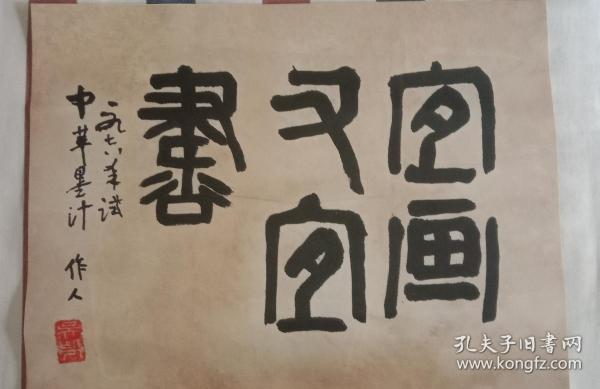 宜画
又宜
書
一九七六年試
中華墨汁 作人
孔夫子旧书网
www.kongfz.com